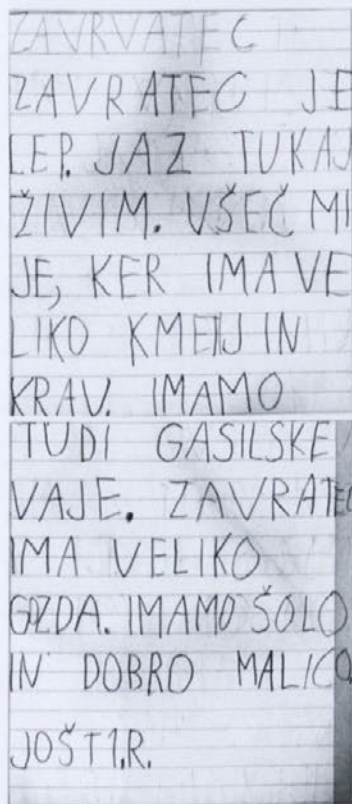 ZAVRVATEC
ZAVRATEC JE
LEP. JAZ TUKAJ
ŽIVIM. VŠEČ MI
JE, KER IMA VE
LIKO KMETIJ IN
KRAV. IMAMO
TUDI GASILSKE
VAJE. ZAVRATEC
IMA VELIKO
GOZDA. IMAMO ŠOLO
IN DOBRO MALICO.
JOŠT 1.R.